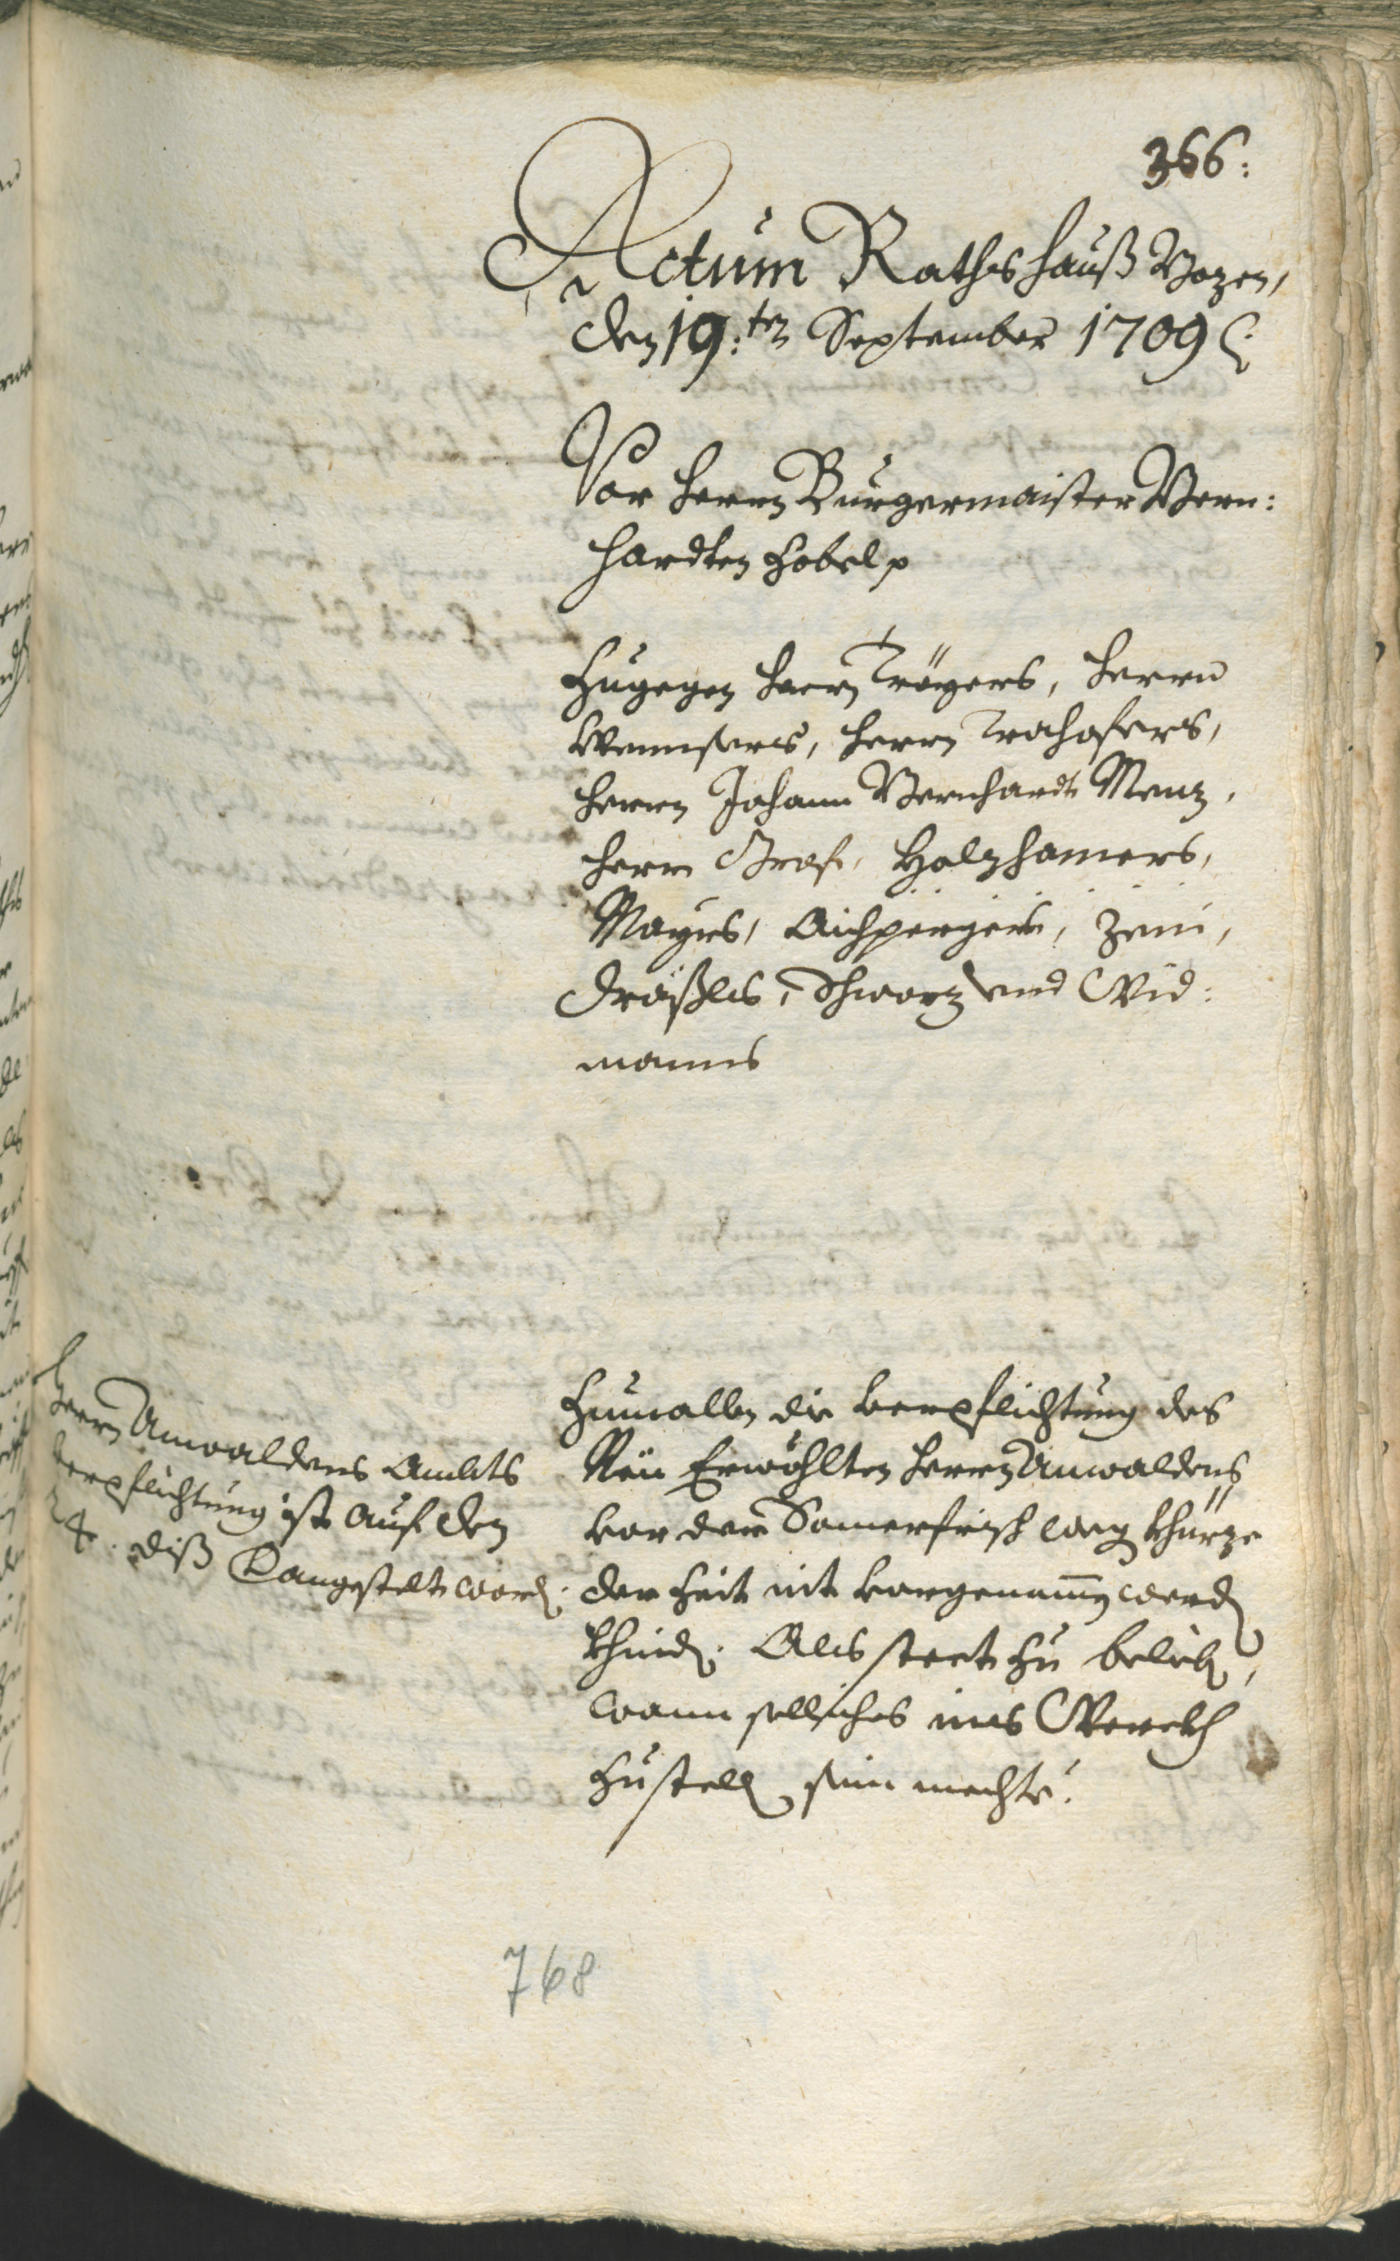 366:
Actum Rathshauß Bozen,
den 19:ten September 1709
Vor herrn Burgermaister Bern:
hardten Hobel p
Zugegen herrn Trögers, herrn
Wenusers, herrn Trahofers,
herrn Johann Bernhardt Menz,
herrn Graf, Holzhamers,
Mayrs, Aichpergers, Zeni,
Dräxls, Schwarz und Wid:
manns
Herrn Anwaldens Ambts
verpflichtung ist auf den
24. diß angestelt word.
Zumallen die verpflichtung des
Neu Erwöhlten herrn Anwaldens
vor der Somerfrisch weg khürze
der Zeit nit vorgenommen werden
khinden. Als steet zu belieben,
wann sollches ins Werckh
zustellen sein mechte.
768